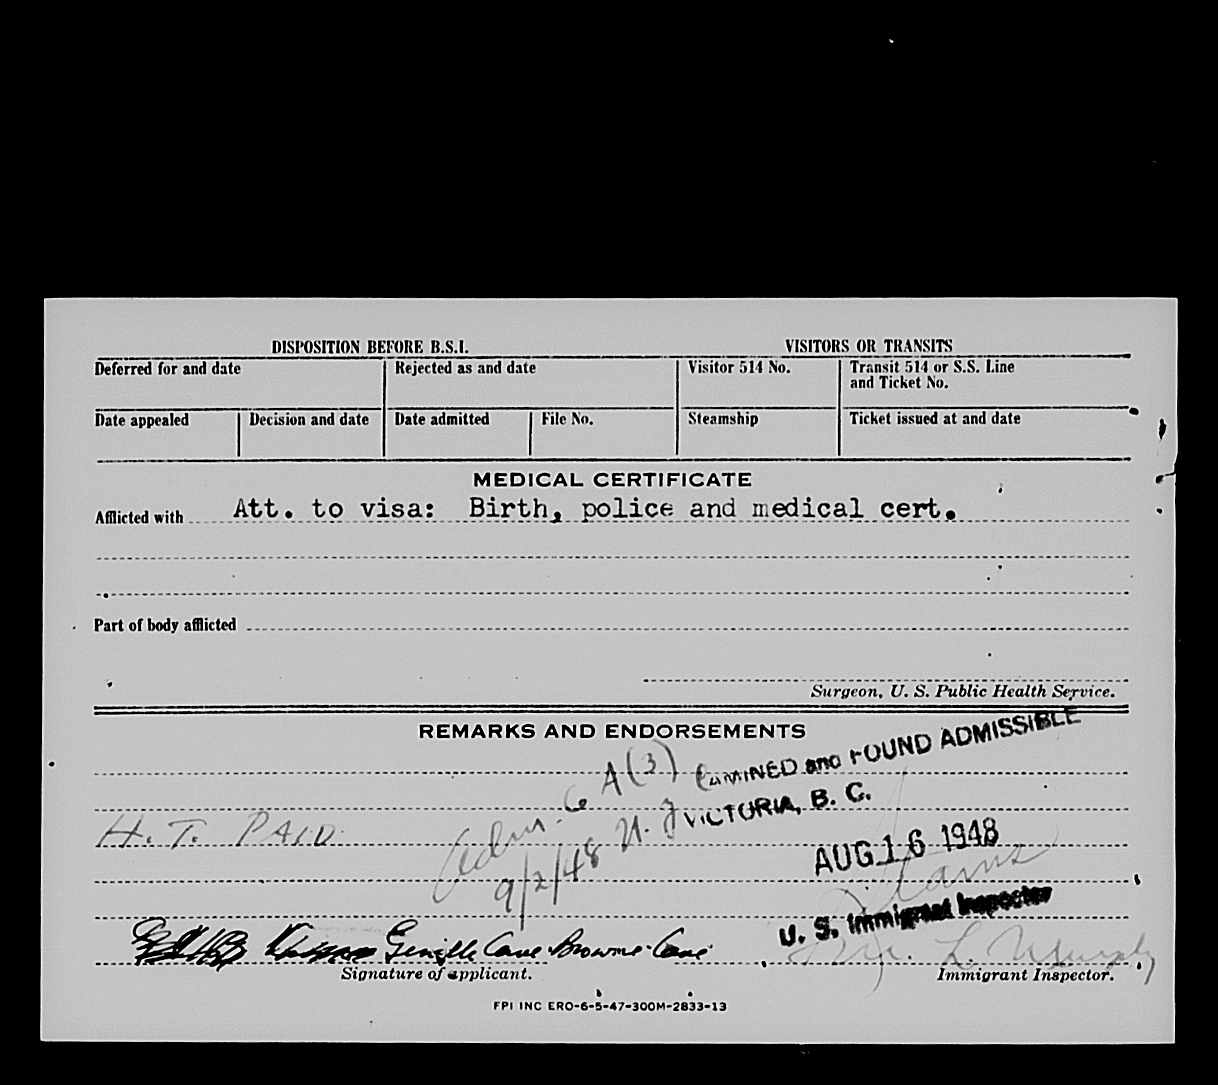 DISPOSITION BEFORE B.S.I. VISITORS OR TRANSITS
Deferred for and date Rejected as and date Visitor 514 No. Transit 514 or S.S. Line and Ticket No.
Date appealed Decision and date Date admitted File No. Steamship Ticket issued at and date
MEDICAL CERTIFICATE
Afflicted with Att. to visa: Birth, police and medical cert.
Part of body afflicted
Surgeon, U. S. Public Health Service.
REMARKS AND ENDORSEMENTS
AMINED and FOUND ADMISSIBLE
VICTORIA, B. C.
AUG 16 1948
U. S. Immigrant Inspector
Adm. 6 A(3)
9/2/48
H. T. PAID
Browne Cave
L. Murphy
Signature of applicant. Immigrant Inspector.
FPI INC ERO-6-5-47-300M-2833-13